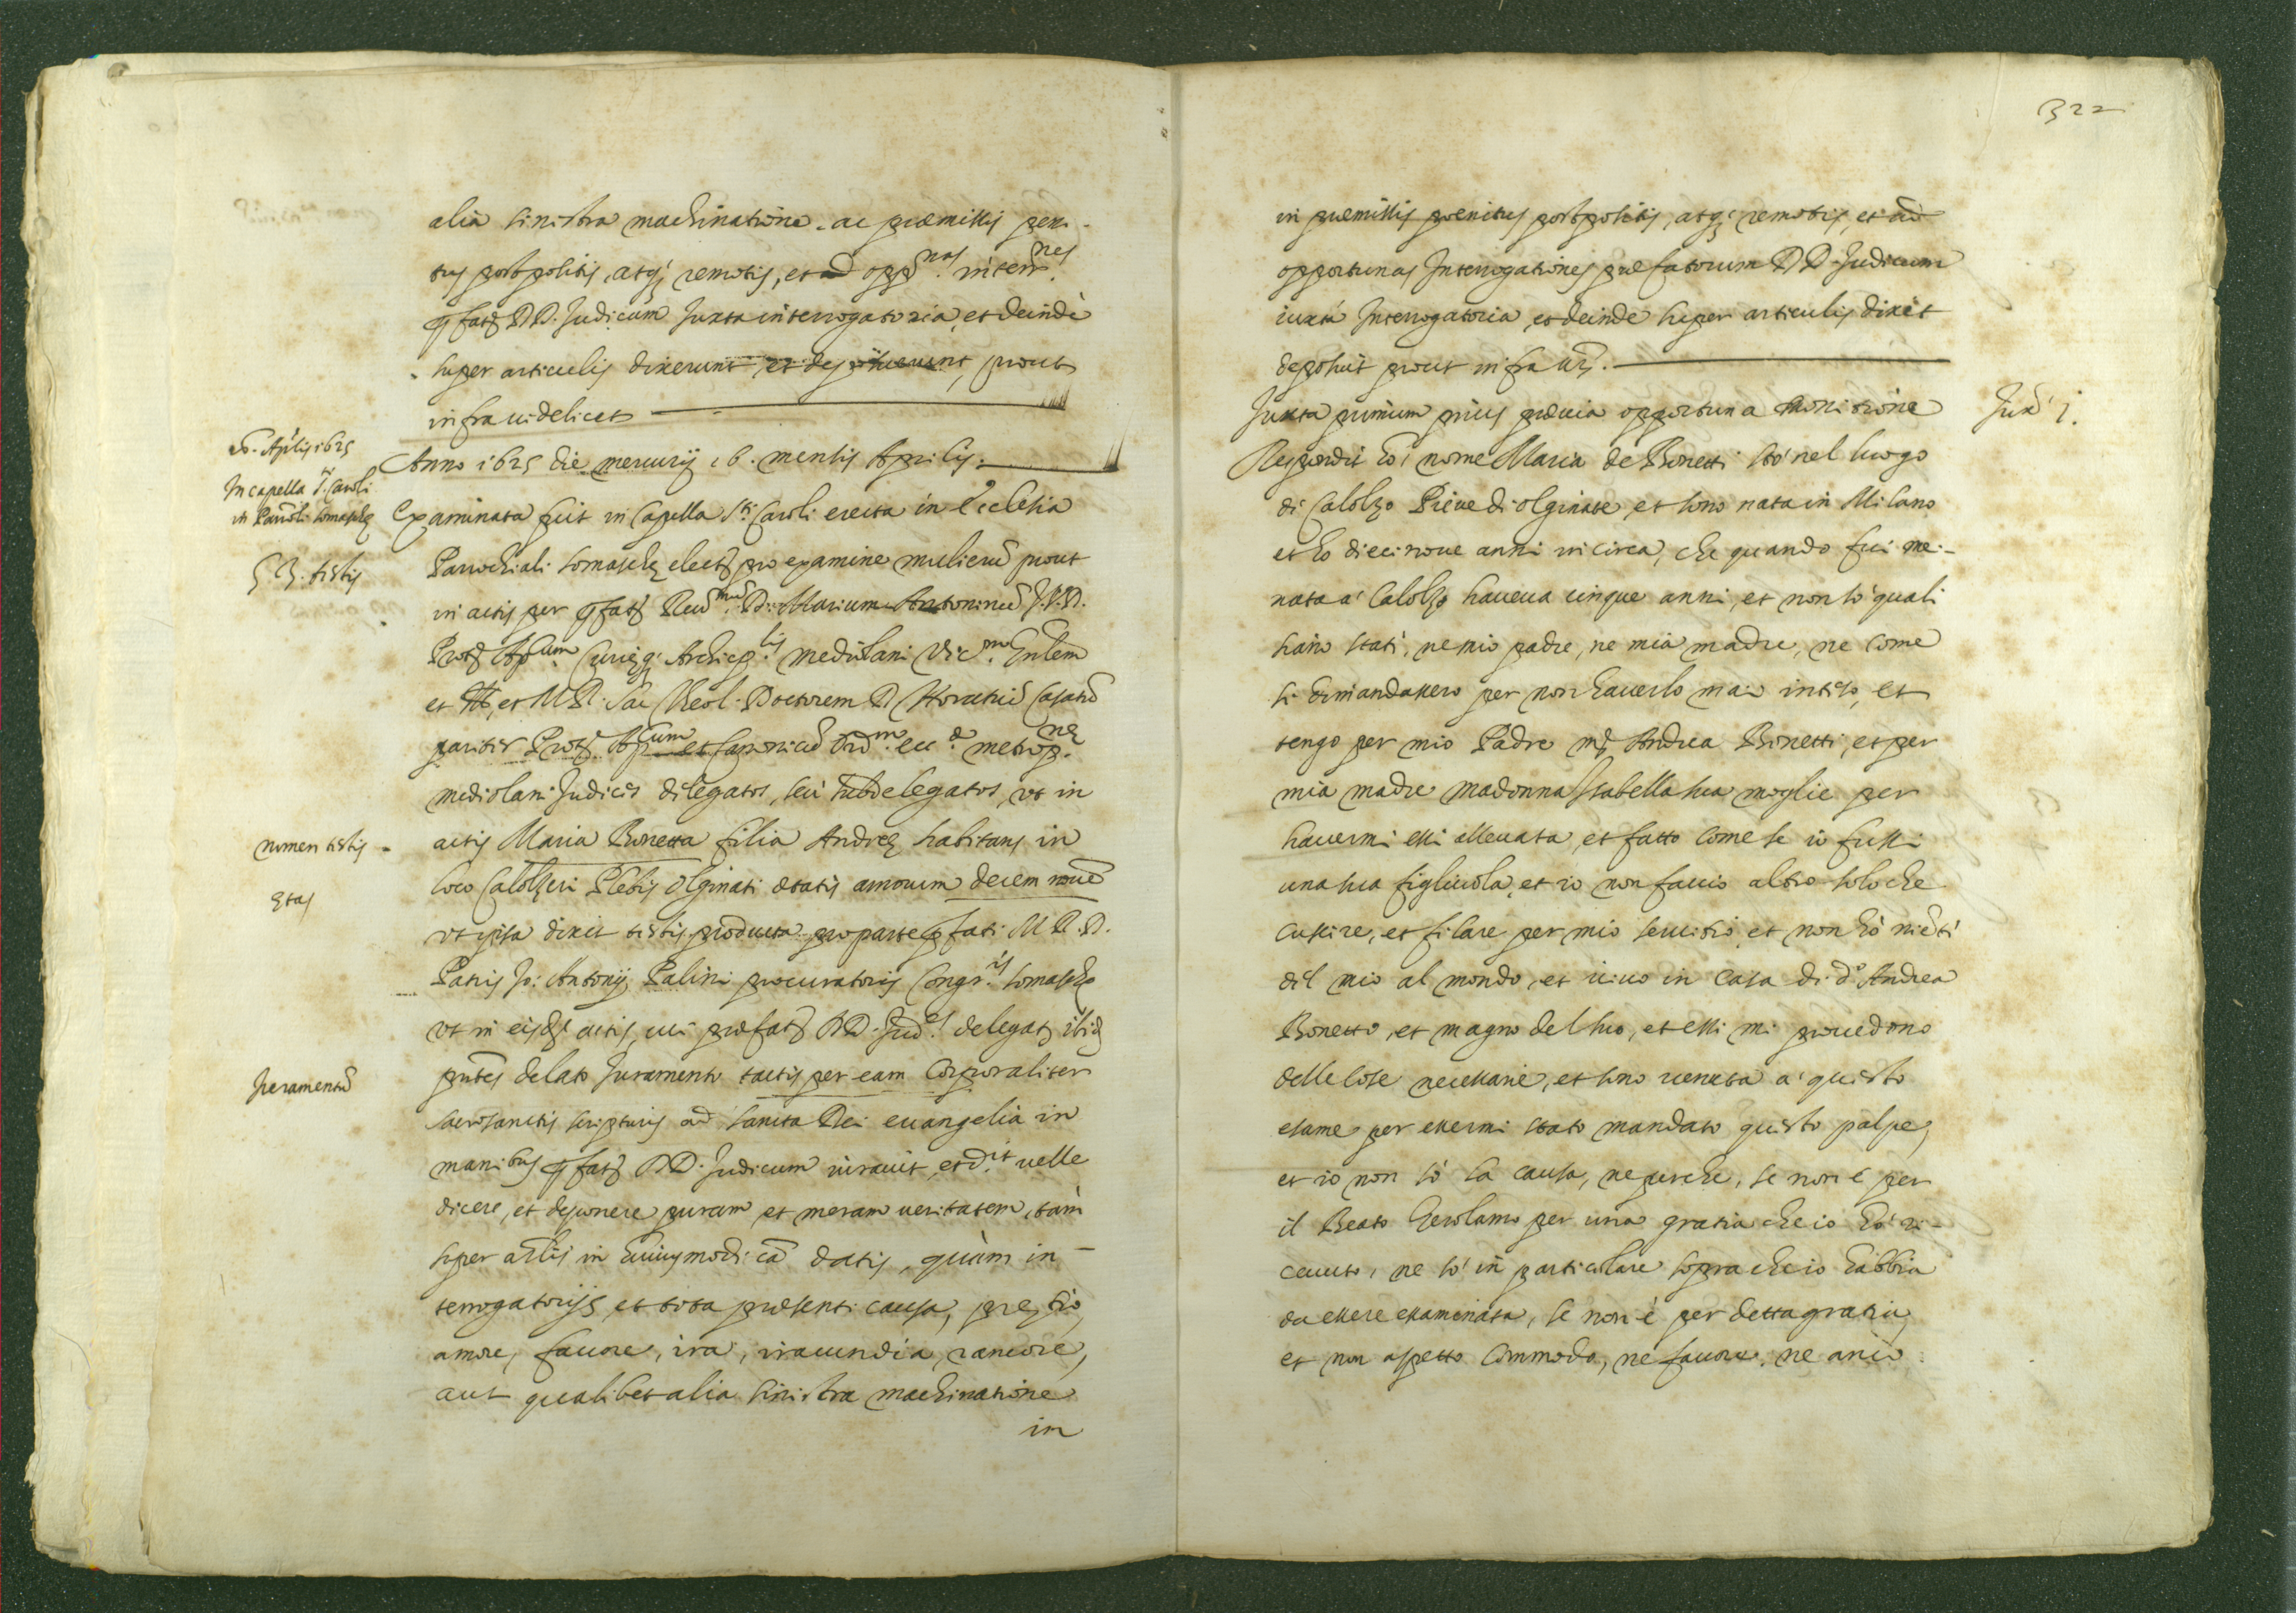 alia sinistra machinatione ac præmissis peni-
tus postpositis, atq; remotis, et ad opp.nas interr.nes
pfat DD. Judicum Juxta interrogatoria, et deinde
super articulis dixerunt et deposuerunt, prout
infra videlicet
16. Aplis 1625
In capella S.ti Caroli
in Paroli Somaschę
53. testis
Anno 1625 die mercurij 16. mensis Aprilis.
Examinata fuit in Capella S.ti Caroli erecta in Ecclesia
Parrochiali Somaschę elect pro examine mulierũ prout
in actis per pfat Reu.mu D. Marium Antoninũ J.V.D.
Prot Ap.cum Curięq; Archiep.lis mediolani Vic.m Gnlem
et et M R. Sac Theol. Doctorem D Horatiũ Casatũ
pariter Prot Ap.cum et Canonicũ Ord.m ecc.æ metrop.nę
mediolani Judices delegatos, seù subdelegatos, vt in
nomen testis
actis Maria Bonetta filia Andreę habitans in
loco Calolzeri Plebis Olginati ętatis annorum decem nouẽ
ętas
vt ipsa dixit testis producta pro parte pfati M R. D.
Patris Jo: Antonij Palini procuratoris Congr.is Somaschę
vt in eisd actis, cui præfat DD. Jud.es delegat ibid
Juramentũ
pñtes delato Juramento tactis per eam Corporaliter
sacrosanctis scripturis ad sancta Dei euangelia in
manibus pfat DD. Judicum iurauit, et d.it uelle
dicere, et deponere puram et meram ueritatem, tam
super artlis in huiusmodi cã datis, quàm in-
terrogatorijs et tota præsenti causa, pretio,
amore, fauore, ira, iracundia, rancore,
aut qualibet alia sinistra machinatione
in
322
in præmissis pœnitus postpositis, atq; remotis, et ad
opportunas Interrogationes præfatorum DD. Judicum
iuxta Interrogatoria et deinde super articulis dixit
deposuit prout infra
Juxta primum prius præuia opportuna monitione
Jux. 1.
Respondit Hò nome Maria de Bonetti stò nel luogo
di Calolzo Pieue di olginate, et sono nata in Milano
et hò diecinoue anni in circa, che quando fui me-
nata à Calolzo haueua cinque anni, et non sò quali
siano stati, ne mio padre, ne mia madre, ne come
si dimandassero per non hauerlo mai inteso, et
tengo per mio Padre Andrea Bonetti, et per
mia madre madonna Isabella sua moglie per
hauermi essi alleuata, et fatto come se io fussi
una sua figliuola, et io non faccio altro solo che
cussire, et filare per mio seruitio, et non hò niẽti
del mio al mondo, et uiuo in casa di d.o Andrea
Bonetto, et magno del suo, et essi mi prouedono
delle cose necessarie, et sono uenuta à questo
esame per essermi stato mandato questo palpe,
et io non sò la causa, ne perche, se non è per
il Beato Gerolamo per una gratia che io hò ri-
ceuuto, ne sò in particolare sopra che io habbia
da essere essaminata, se non è per detta gratia,
et non aspetto commodo, ne fauore, ne anco